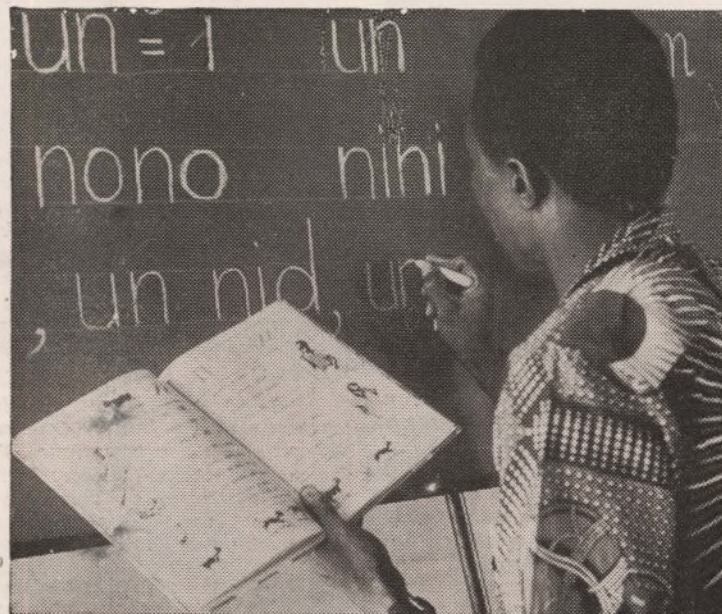 un = 1 un n
nono nini
, un nid, un